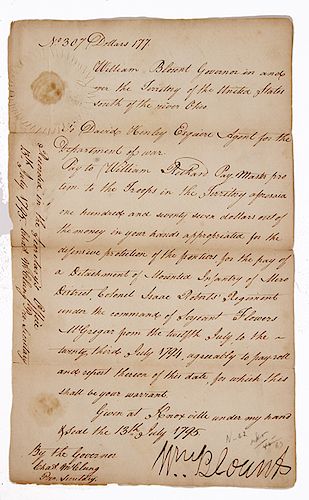 No 307 Dollars 177
William Blount Governor in and
over the Territory of the United States
south of the river Ohio
To David Henley Esquire Agent for the
Department of war
Pay to William Rickard Pay Master pro
tem to the Troops in the Territory aforesaid
one hundred and seventy seven dollars out of
the money in your hands appropriated for the
defensive protection of the frontiers for the pay of
a Detachment of Mounted Infantry of Mero
District, Colonel Isaac Roberts' Regiment
under the command of Serjeant Flowers
McGregor from the twelfth July to the
twenty third July 1794, agreeably to payroll
and report thereon of this date, for which this
shall be your warrant.
Given at Knoxville under my hand
& seal the 13th July 1795
Wm Blount
By the Governor
Chas McClung
Pro. Secretary
Recorded in the Secretary's Office
13th July 1795
Chas McClung
Pro. Secretary